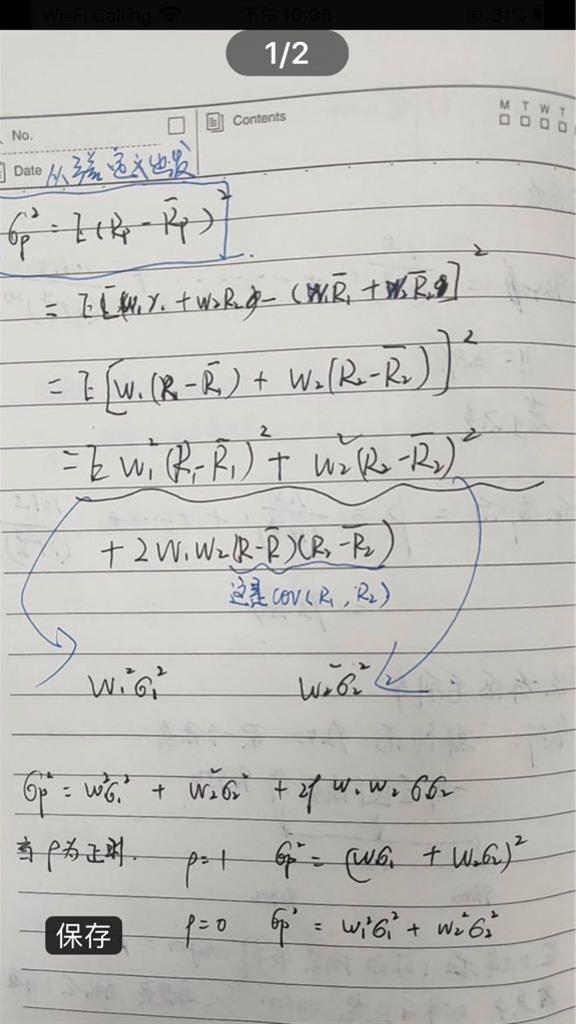 Wi-Fi Calling 下午10:36 31%
1/2
No. Contents M T W T
Date 从 定义出发
σp² = E(Rp - R̄p)²
= E[(w₁r₁ + w₂R₂) - (w₁R̄₁ + w₂R̄₂)]²
= E[w₁(R₁-R̄₁) + w₂(R₂-R̄₂)]²
= E w₁²(R₁-R̄₁)² + w₂²(R₂-R̄₂)²
+ 2w₁w₂(R-R̄)(R₂-R̄₂)
这是cov(R₁, R₂)
w₁²σ₁² w₂²σ₂²
σp² = w²σ₁² + w₂²σ₂² + 2ρ w₁ w₂ σσ₂
当ρ为正时. ρ=1 σp² = (wσ₁ + w₂σ₂)²
ρ=0 σp² = w₁²σ₁² + w₂²σ₂²
保存